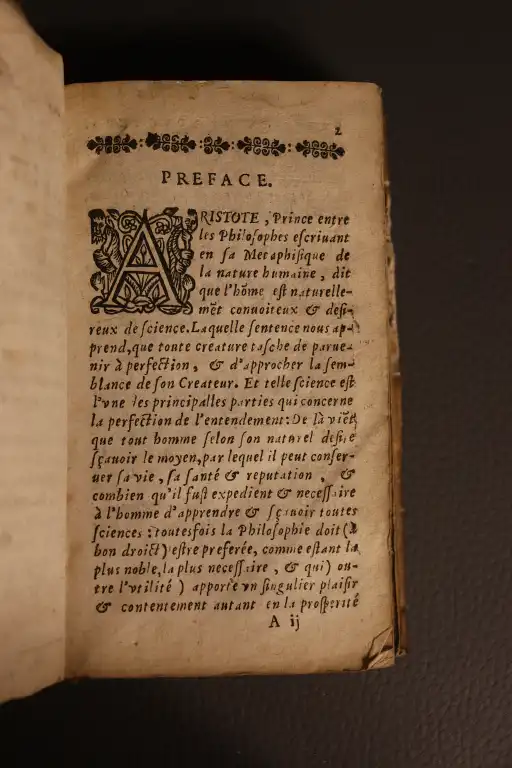 2
PREFACE.
ARISTOTE, Prince entre
les Philosophes eſcriuant
en ſa Metaphiſique de
la nature humaine, dit
que l'hõme eſt naturelle-
mẽt conuoiteux & deſi-
reux de ſcience. Laquelle ſentence nous ap-
prend, que toute creature taſche de parue-
nir à perfection, & d'approcher la ſem-
blance de ſon Createur. Et telle ſcience eſt
l'vne des principalles parties qui concerne
la perfection de l'entendement: De là viẽt,
que tout homme ſelon ſon naturel deſire
ſçauoir le moyen, par lequel il peut conſer-
uer ſa vie, ſa ſanté & reputation, &
combien qu'il fuſt expedient & neceſſaire
à l'homme d'apprendre & ſçauoir toutes
ſciences: toutesfois la Philoſophie doit (à
bon droict) eſtre preferée, comme eſtant la
plus noble, la plus neceſſaire, & qui) ou-
tre l'vtilité) apporte vn ſingulier plaiſir
& contentement autant en la proſperité
A ij